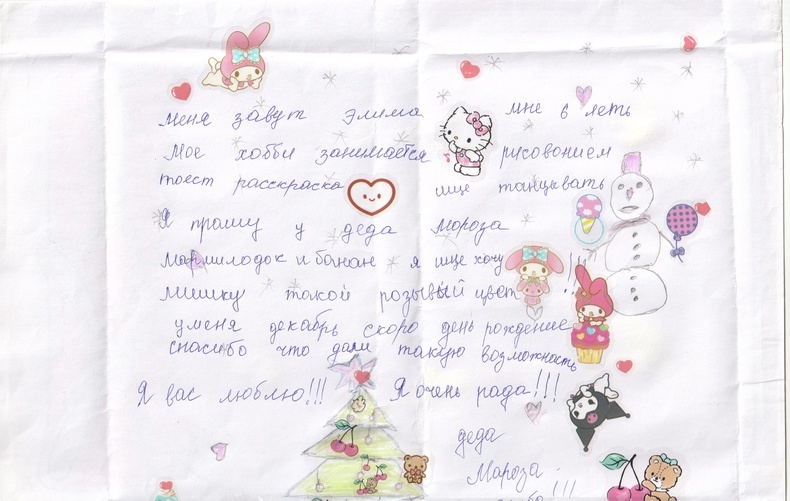 меня завут элима мне 6 леть
мое хобби занимается рисованием
тоест расскраска ище танцывать
Я прошу у деда мороза
мармилодок и банан я ище хочу
мишку такой розывый цвет !!!
уменя декабрь скоро день рождение
спасибо что дали такую возможность
Я вас люблю!!! Я очень рада!!!
деда
Мороза
!!!